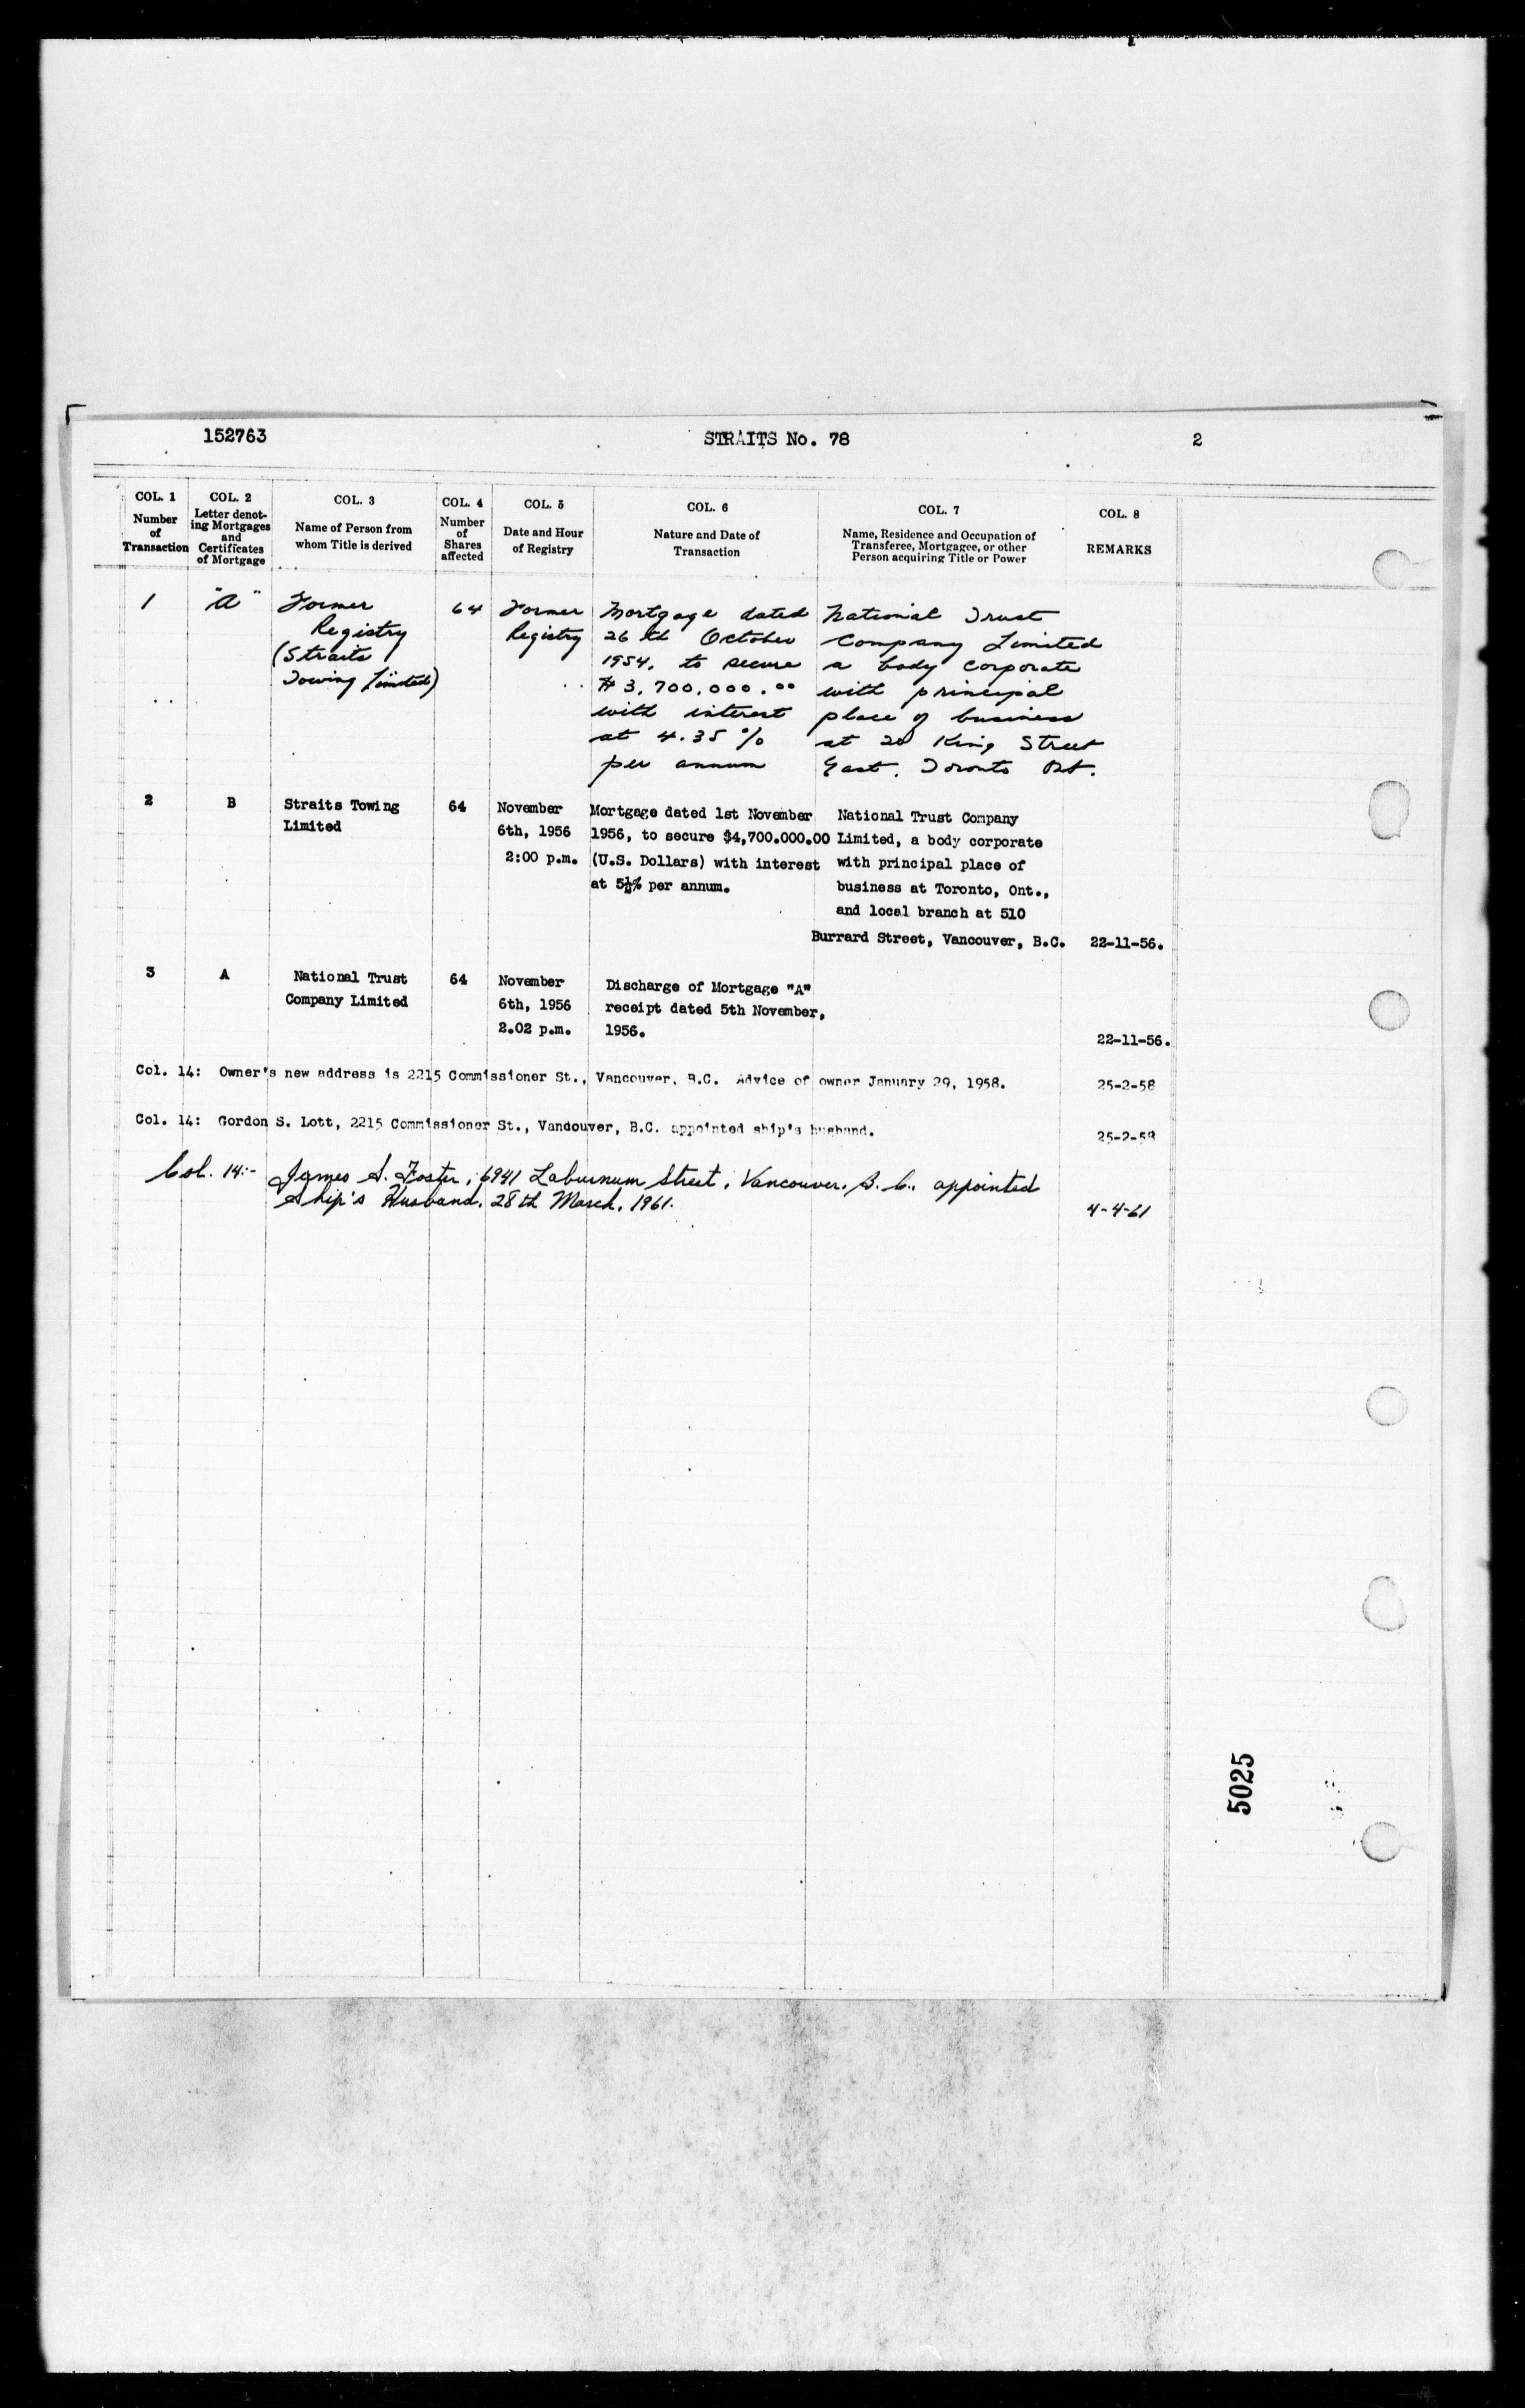 152763 STRAITS No. 78 2
COL. 1 COL. 2 COL. 3 COL. 4 COL. 5 COL. 6 COL. 7 COL. 8
Number of Transaction
Letter denot-
ing Mortgages
and
Certificates
of Mortgage
Name of Person from
whom Title is derived
Number
of
Shares
affected
Date and Hour
of Registry
Nature and Date of
Transaction
Name, Residence and Occupation of
Transferee, Mortgagee, or other
Person acquiring Title or Power
REMARKS
1 "A"
Former
Registry
(Straits
Towing Limited)
64
Former
Registry
Mortgage dated
26th October
1954. to secure
$3,700,000.00
with interest
at 4.35%
per annum
National Trust
Company Limited
a body corporate
with principal
place of business
at 20 King Street
East. Toronto Ont.
2 B
Straits Towing
Limited
64
November
6th, 1956
2:00 p.m.
Mortgage dated 1st November
1956, to secure $4,700.000.00
(U.S. Dollars) with interest
at 5½% per annum.
National Trust Company
Limited, a body corporate
with principal place of
business at Toronto, Ont.,
and local branch at 510
Burrard Street, Vancouver, B.C. 22-11-56.
3 A
National Trust
Company Limited
64
November
6th, 1956
2.02 p.m.
Discharge of Mortgage "A"
receipt dated 5th November,
1956.
22-11-56.
Col. 14: Owner's new address is 2215 Commissioner St., Vancouver, B.C. Advice of owner January 29, 1958. 25-2-58
Col. 14: Gordon S. Lott, 2215 Commissioner St., Vandouver, B.C. appointed ship's husband. 25-2-58
Col. 14:- James S. Foster, 6941 Laburnum Street, Vancouver. B.C., appointed
Ship's Husband. 28th March, 1961. 4-4-61
5025